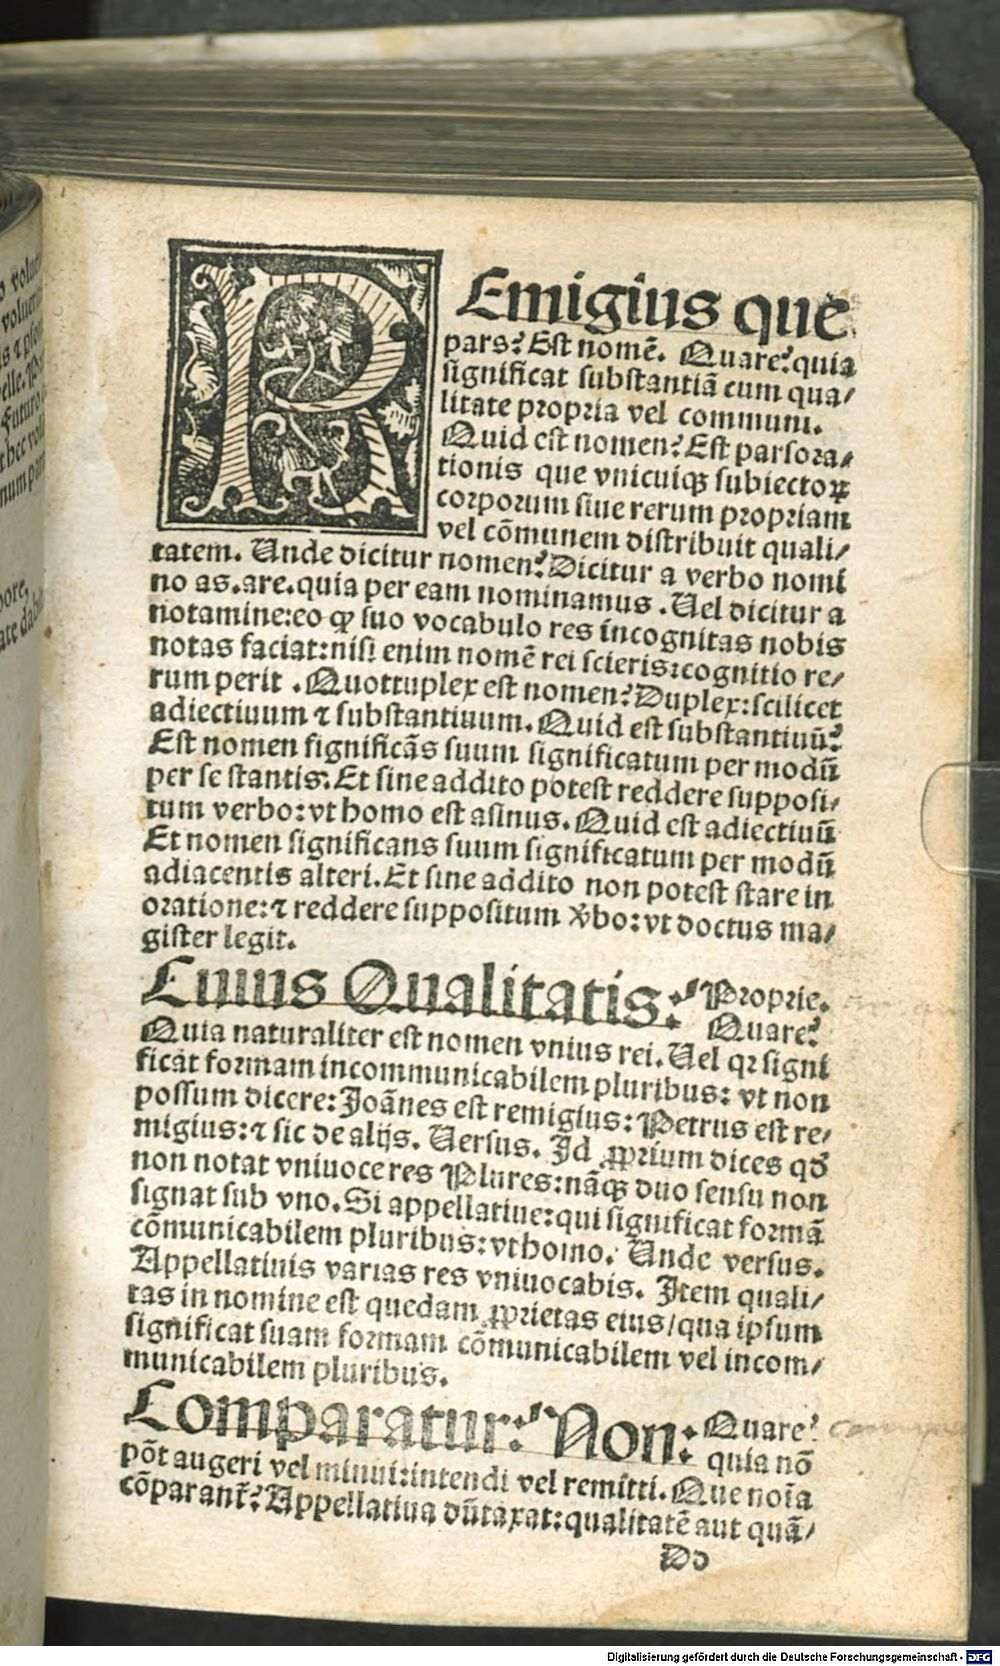 REmigius que
pars? Est nomē. Quare? quia
significat substantiā cum qua/
litate propria vel communi.
Quid est nomen? Est pars ora/
tionis que vnicuiqꝫ subiectoꝝ
corporum siue rerum propriam
vel cōmunem distribuit quali/
tatem. Unde dicitur nomen? Dicitur a verbo nomi
no as.are.quia per eam nominamus. Uel dicitur a
notamine:eo ꝙ suo vocabulo res incognitas nobis
notas faciat:nisi enim nomē rei scieris:cognitio re/
rum perit. Quottuplex est nomen? Duplex:scilicet
adiectiuum ⁊ substantiuum. Quid est substantiuū?
Est nomen significās suum significatum per modū
per se stantis. Et sine addito potest reddere supposi/
tum verbo: vt homo est asinus. Quid est adiectiuū
Et nomen significans suum significatum per modū
adiacentis alteri. Et sine addito non potest stare in
oratione:⁊ reddere suppositum v̄bo: vt doctus ma/
gister legit.
Cuius Qualitatis: Proprie.
Quare?
Quia naturaliter est nomen vnius rei. Uel qꝛ signi
ficat formam incommunicabilem pluribus: vt non
possum dicere: Joānes est remigius: Petrus est re/
migius:⁊ sic de alijs. Uersus. Id ꝓprium dices qd̄
non notat vniuoce res Plures:nāqꝫ duo sensu non
signat sub vno. Si appellatiue:qui significat formā
cōmunicabilem pluribus: vt homo. Unde versus.
Appellatiuis varias res vniuocabis. Item quali/
tas in nomine est quedam ꝓprietas eius/qua ipsum
significat suam formam cōmunicabilem vel incom/
municabilem pluribus.
Comparatur: Non: Quare?
quia nō
pōt augeri vel minui:intendi vel remitti. Que noīa
cōparant᷑? Appellatiua dūtaxat:qualitatē aut quā/
Dd
Digitalisierung gefördert durch die Deutsche Forschungsgemeinschaft - DFG